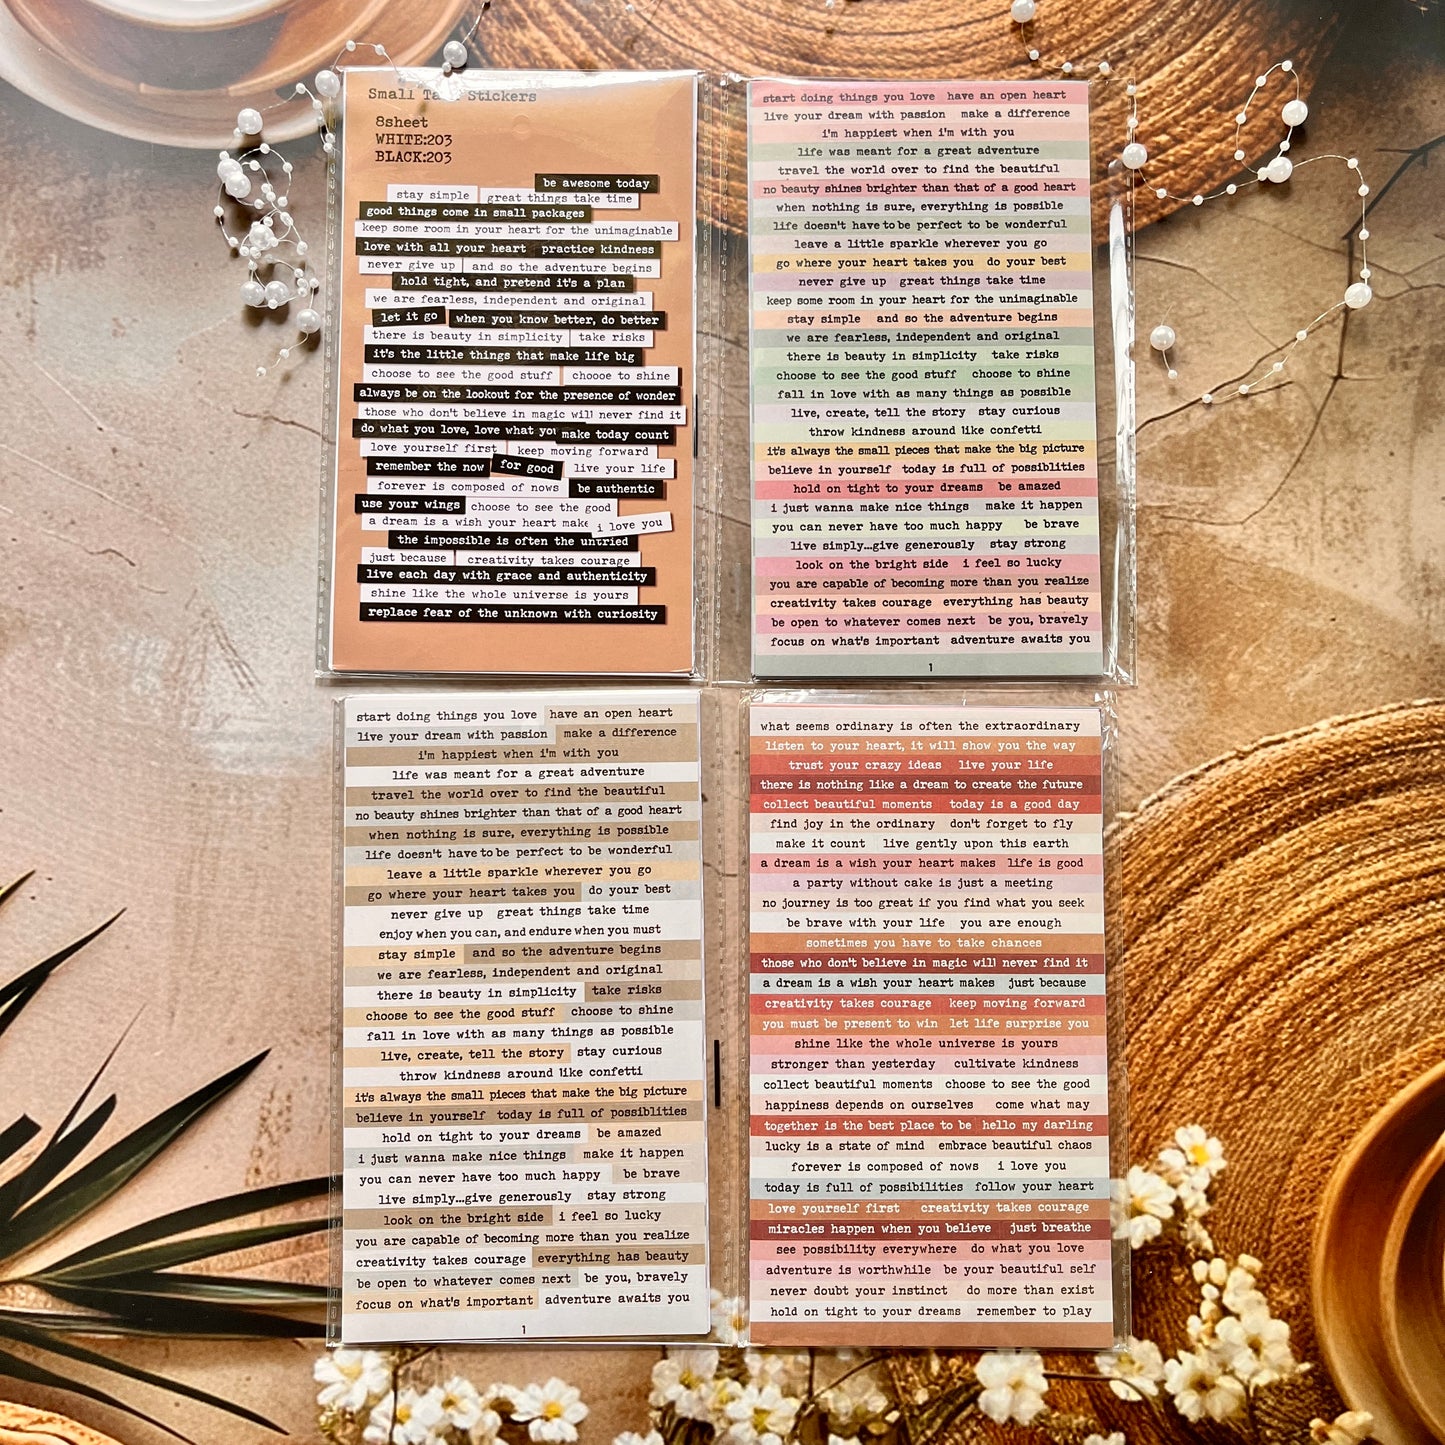 Small Talk Stickers
8sheet
WHITE:203
BLACK:203
be awesome today
stay simple great things take time
good things come in small packages
keep some room in your heart for the unimaginable
love with all your heart practice kindness
never give up and so the adventure begins
hold tight, and pretend it's a plan
we are fearless, independent and original
let it go when you know better, do better
there is beauty in simplicity take risks
it's the little things that make life big
choose to see the good stuff choooe to shine
always be on the lookout for the presence of wonder
those who don't believe in magic will never find it
do what you love, love what you make today count
love yourself first keep moving forward
remember the now for good live your life
forever is composed of nows be authentic
use your wings choose to see the good
a dream is a wish your heart make i love you
the impossible is often the untried
just because creativity takes courage
live each day with grace and authenticity
shine like the whole universe is yours
replace fear of the unknown with curiosity
start doing things you love have an open heart
live your dream with passion make a difference
i'm happiest when i'm with you
life was meant for a great adventure
travel the world over to find the beautiful
no beauty shines brighter than that of a good heart
when nothing is sure, everything is possible
life doesn't have to be perfect to be wonderful
leave a little sparkle wherever you go
go where your heart takes you do your best
never give up great things take time
keep some room in your heart for the unimaginable
stay simple and so the adventure begins
we are fearless, independent and original
there is beauty in simplicity take risks
choose to see the good stuff choose to shine
fall in love with as many things as possible
live, create, tell the story stay curious
throw kindness around like confetti
it's always the small pieces that make the big picture
believe in yourself today is full of possiblities
hold on tight to your dreams be amazed
i just wanna make nice things make it happen
you can never have too much happy be brave
live simply...give generously stay strong
look on the bright side i feel so lucky
you are capable of becoming more than you realize
creativity takes courage everything has beauty
be open to whatever comes next be you, bravely
focus on what's important adventure awaits you
1
start doing things you love have an open heart
live your dream with passion make a difference
i'm happiest when i'm with you
life was meant for a great adventure
travel the world over to find the beautiful
no beauty shines brighter than that of a good heart
when nothing is sure, everything is possible
life doesn't have to be perfect to be wonderful
leave a little sparkle wherever you go
go where your heart takes you do your best
never give up great things take time
enjoy when you can, and endure when you must
stay simple and so the adventure begins
we are fearless, independent and original
there is beauty in simplicity take risks
choose to see the good stuff choose to shine
fall in love with as many things as possible
live, create, tell the story stay curious
throw kindness around like confetti
it's always the small pieces that make the big picture
believe in yourself today is full of possiblities
hold on tight to your dreams be amazed
i just wanna make nice things make it happen
you can never have too much happy be brave
live simply...give generously stay strong
look on the bright side i feel so lucky
you are capable of becoming more than you realize
creativity takes courage everything has beauty
be open to whatever comes next be you, bravely
focus on what's important adventure awaits you
1
what seems ordinary is often the extraordinary
listen to your heart, it will show you the way
trust your crazy ideas live your life
there is nothing like a dream to create the future
collect beautiful moments today is a good day
find joy in the ordinary don't forget to fly
make it count live gently upon this earth
a dream is a wish your heart makes life is good
a party without cake is just a meeting
no journey is too great if you find what you seek
be brave with your life you are enough
sometimes you have to take chances
those who don't believe in magic will never find it
a dream is a wish your heart makes just because
creativity takes courage keep moving forward
you must be present to win let life surprise you
shine like the whole universe is yours
stronger than yesterday cultivate kindness
collect beautiful moments choose to see the good
happiness depends on ourselves come what may
together is the best place to be hello my darling
lucky is a state of mind embrace beautiful chaos
forever is composed of nows i love you
today is full of possibilities follow your heart
love yourself first creativity takes courage
miracles happen when you believe just breathe
see possibility everywhere do what you love
adventure is worthwhile be your beautiful self
never doubt your instinct do more than exist
hold on tight to your dreams remember to play